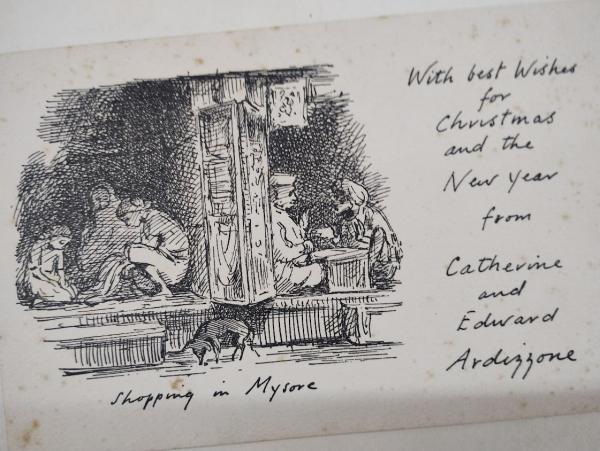 With best Wishes
for
Christmas
and the
New Year
from
Catherine
and
Edward
Ardizzone
Shopping in Mysore